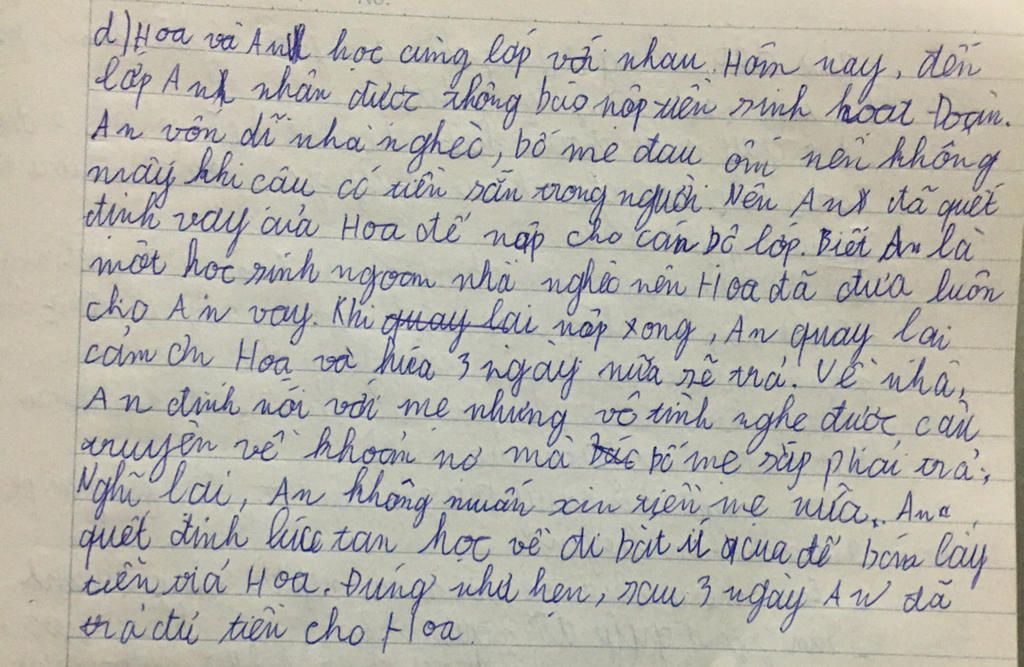 d) Hoa và An học cùng lớp với nhau. Hôm nay, đến
lớp An nhân được thông báo nộp tiền sinh hoạt Đoàn.
An vốn dĩ nhà nghèo, bố mẹ đau ốm nên không
mấy khi cậu có tiền sẵn trong người. Nên An đã quết
định vay của Hoa để nộp cho cán bộ lớp. Biết An là
một học sinh ngoan nhà nghèo nên Hoa đã đưa luôn
cho An vay. Khi quay lại nộp xong, An quay lại
cảm ơn Hoa và hứa 3 ngày nữa sẽ trả. Về nhà,
An định nói với mẹ nhưng vô tình nghe được câu
truyện về khoản nợ mà bố mẹ sắp phải trả.
Nghĩ lại, An không muốn xin tiền mẹ nữa. An
quết định lúc tan học về đi bắt ít cua để bán lấy
tiền trả Hoa. Đúng như hẹn, sau 3 ngày An đã
trả đủ tiền cho Hoa.